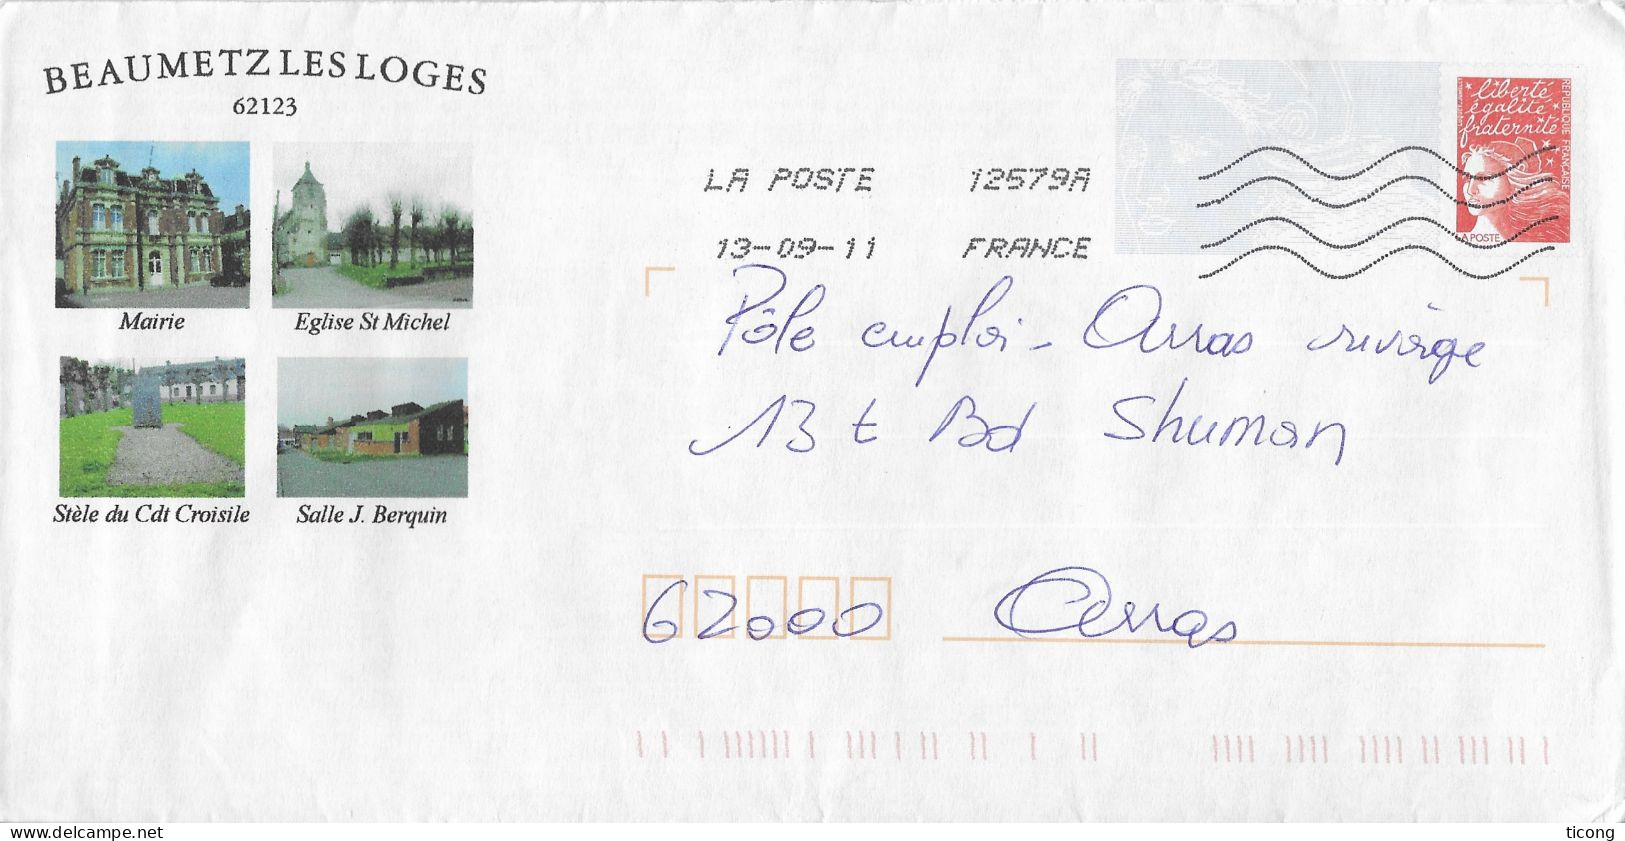 BEAUMETZ LES LOGES
62123
Mairie
Eglise St Michel
Stèle du Cdt Croisile
Salle J. Berquin
LA POSTE 12579A
13-09-11 FRANCE
liberté
égalité
fraternité
REPUBLIQUE FRANÇAISE
LA POSTE
Pôle emploi - Arras rivage
13 t Bd Shuman
62000 Arras
delcampe.net
ticong